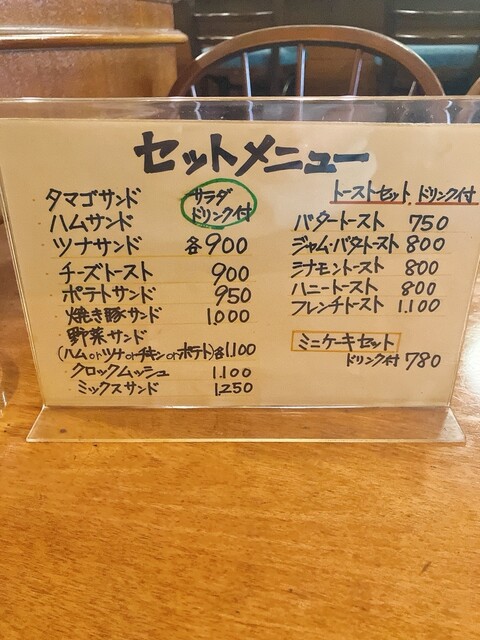 セットメニュー
サラダ
ドリンク付
タマゴサンド
ハムサンド
ツナサンド 各900
チーズトースト 900
ポテトサンド 950
焼き豚サンド 1,000
野菜サンド
(ハムorツナorチキンorポテト)各1,100
クロックムッシュ 1,100
ミックスサンド 1,250
トーストセット ドリンク付
バタートースト 750
ジャム・バタトースト 800
シナモントースト 800
ハニートースト 800
フレンチトースト 1,100
ミニケーキセット
ドリンク付 780